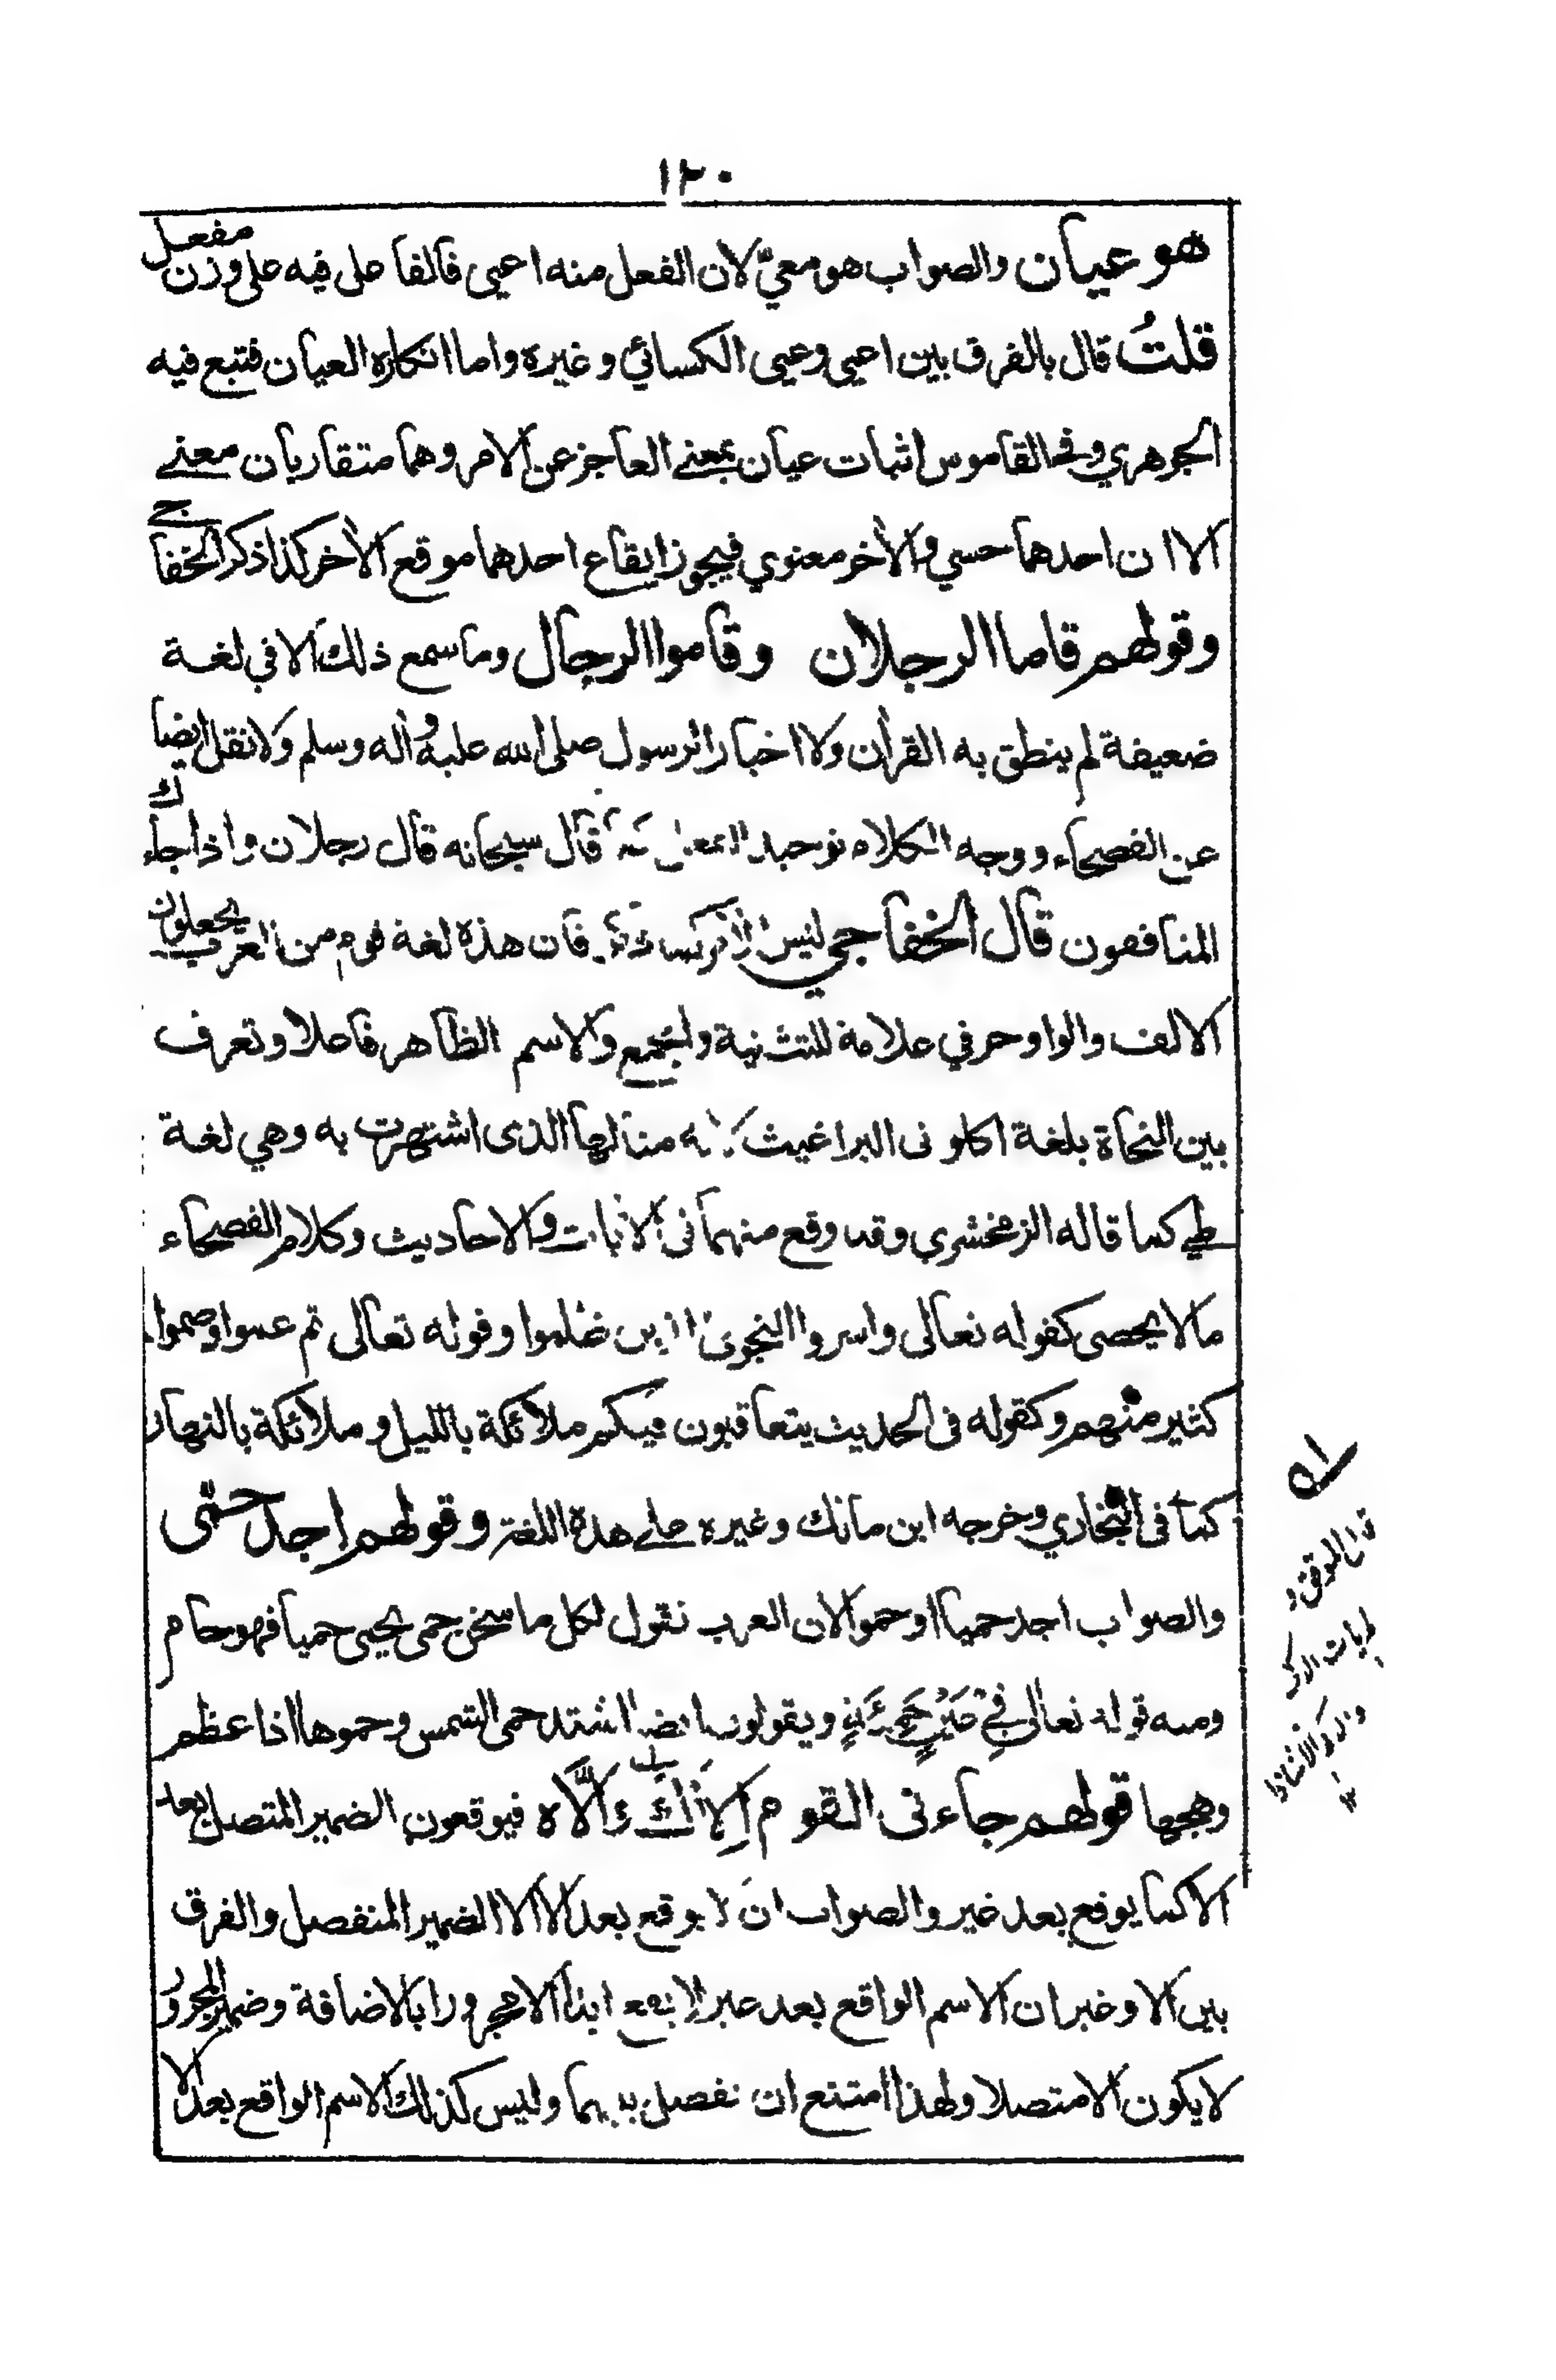 ١٢٠
هو عيان والصواب هو معيٌّ لان الفعل منه اعيى فالفاعل فيه على وزن مفعل
قلتُ قال بالفرق بين اعيى وعيى الكسائي وغيره واما انكاره العيان فتبع فيه
الجوهري وفي القاموس اثبات عيان بمعنى العاجز عن الامر وهما متقاربان معنى
الا ان احدهما حسي والاخر معنوي فيجوز ايقاع احدهما موقع الاخر كذا ذكر الخفاجي
وقولهم قاما الرجلان وقاموا الرجال وما سمع ذلك الا في لغة
ضعيفة لم ينطق به القرأن ولا اخبار الرسول صلى الله عليه وأله وسلم ولا نقل ايضا
عن الفصحاء ووجه الكلام توحيد الفعل قال سبحانه قال رجلان واذا جاءك
المنافقون قال الخفاجي ليس الامر كما فان هذه لغة قوم من العرب يجعلون
الالف والواو حرفي علامة للتثنية والجمع والاسم الظاهر فاعلا وتعرف
بين النحاة بلغة اكلوني البراغيث لانه مثالها الذى اشتهرت به وهي لغة
طي كما قاله الزمخشري وقد وقع منها فى الايات والاحاديث وكلام الفصحاء
ما لا يحصى كقوله تعالى واسروا النجوى الذين ظلموا وقوله تعالى ثم عموا وصموا
كثير منهم وكقوله فى الحديث يتعاقبون فيكم ملائكة بالليل وملائكة بالنهار
كما فى البخاري وخرجه ابن مالك وغيره على هذه اللغة وقولهم اجد حمى
والصواب اجد حميا او حموا لان العرب تقول لكل ما سخن حمى يحمى حميا فهو حام
ومنه قوله تعالى فِيْ عَيْنٍ حَمِئَةٍ ويقولون ايضا اشتد حمى الشمس وحموها اذا عظم
وهجها قولهم جاءنى القوم اِلاكَ وَاِلَّاه فيوقعون الضمير المتصل بعد
الا كما يوقع بعد غير والصواب ان لا يوقع بعد الا الا الضمير المنفصل والفرق
بين الا وغير ان الاسم الواقع بعد غير لا يقع ابدا الا مجرورا بالاضافة وضمير المجرور
لا يكون الا متصلا ولهذا امتنع ان تفصل بينهما وليس كذلك الاسم الواقع بعد الا